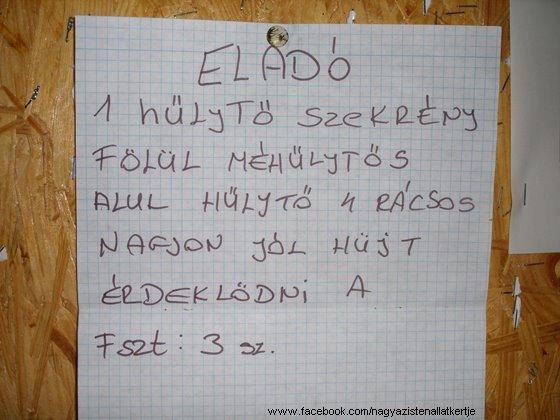 ELADÓ
1 HŰLYTŐ SZEKRÉNY
FÖLÜL MÉHŰLYTŐS
ALUL HŰLYTŐ 4 RÁCSOS
NAGJON JÓL HŰJT
ÉRDEKLŐDNI A
Fszt: 3 sz.
www.facebook.com/nagyazistenallatkertje